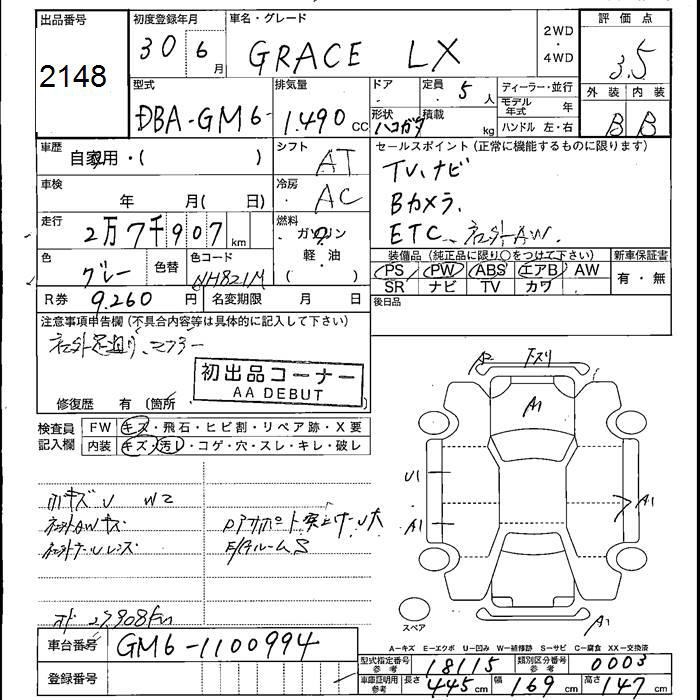 出品番号
2148
初度登録年月
30 6月
車名・グレード
GRACE LX
2WD
・
4WD
評価点
3.5
外装 内装
B B
型式
DBA-GM6-
排気量
1.490 CC
ドア
・
定員
5人
形状
ハコガタ
積載
kg
ディーラー・並行
モデル年式 年
ハンドル 左・右
車歴
自家用・( )
シフト
AT
セールスポイント(正常に機能するものに限ります)
TV、ナビ
Bカメラ、
ETC、社外AW、
車検
年 月( 日)
冷房
AC
走行
2万7千907km
燃料
ガソリン
・
軽・油
( )
色
グレー
色替
色コード
NH821M
装備品(純正品に限り○をつけて下さい)
PS PW ABS エアB AW
SR ナビ TV カワ
新車保証書
有・無
R券 9.260円
名変期限 月 日
後日品
注意事項申告欄(不具合内容等は具体的に記入して下さい)
社外足廻り、マフラー
初出品コーナー
AA DEBUT
修復歴 有(箇所 )
検査員記入欄
FW キズ・飛石・ヒビ割・リペア跡・X要
内装 キズ・汚レ・コゲ・穴・スレ・キレ・破レ
小キズU W2
社外AWキズ
A2 下スリ
A1
U1
A1
A1
A1
スペア
A-キズ E-エクボ U-凹み W-補修跡 S-サビ C-腐食 XX-交換済
車台番号
GM6-1100994
登録番号
型式指定番号 参考 18115
類別区分番号 参考 0003
車庫証明用 参考 長さ 445cm 幅 169cm 高さ 147cm